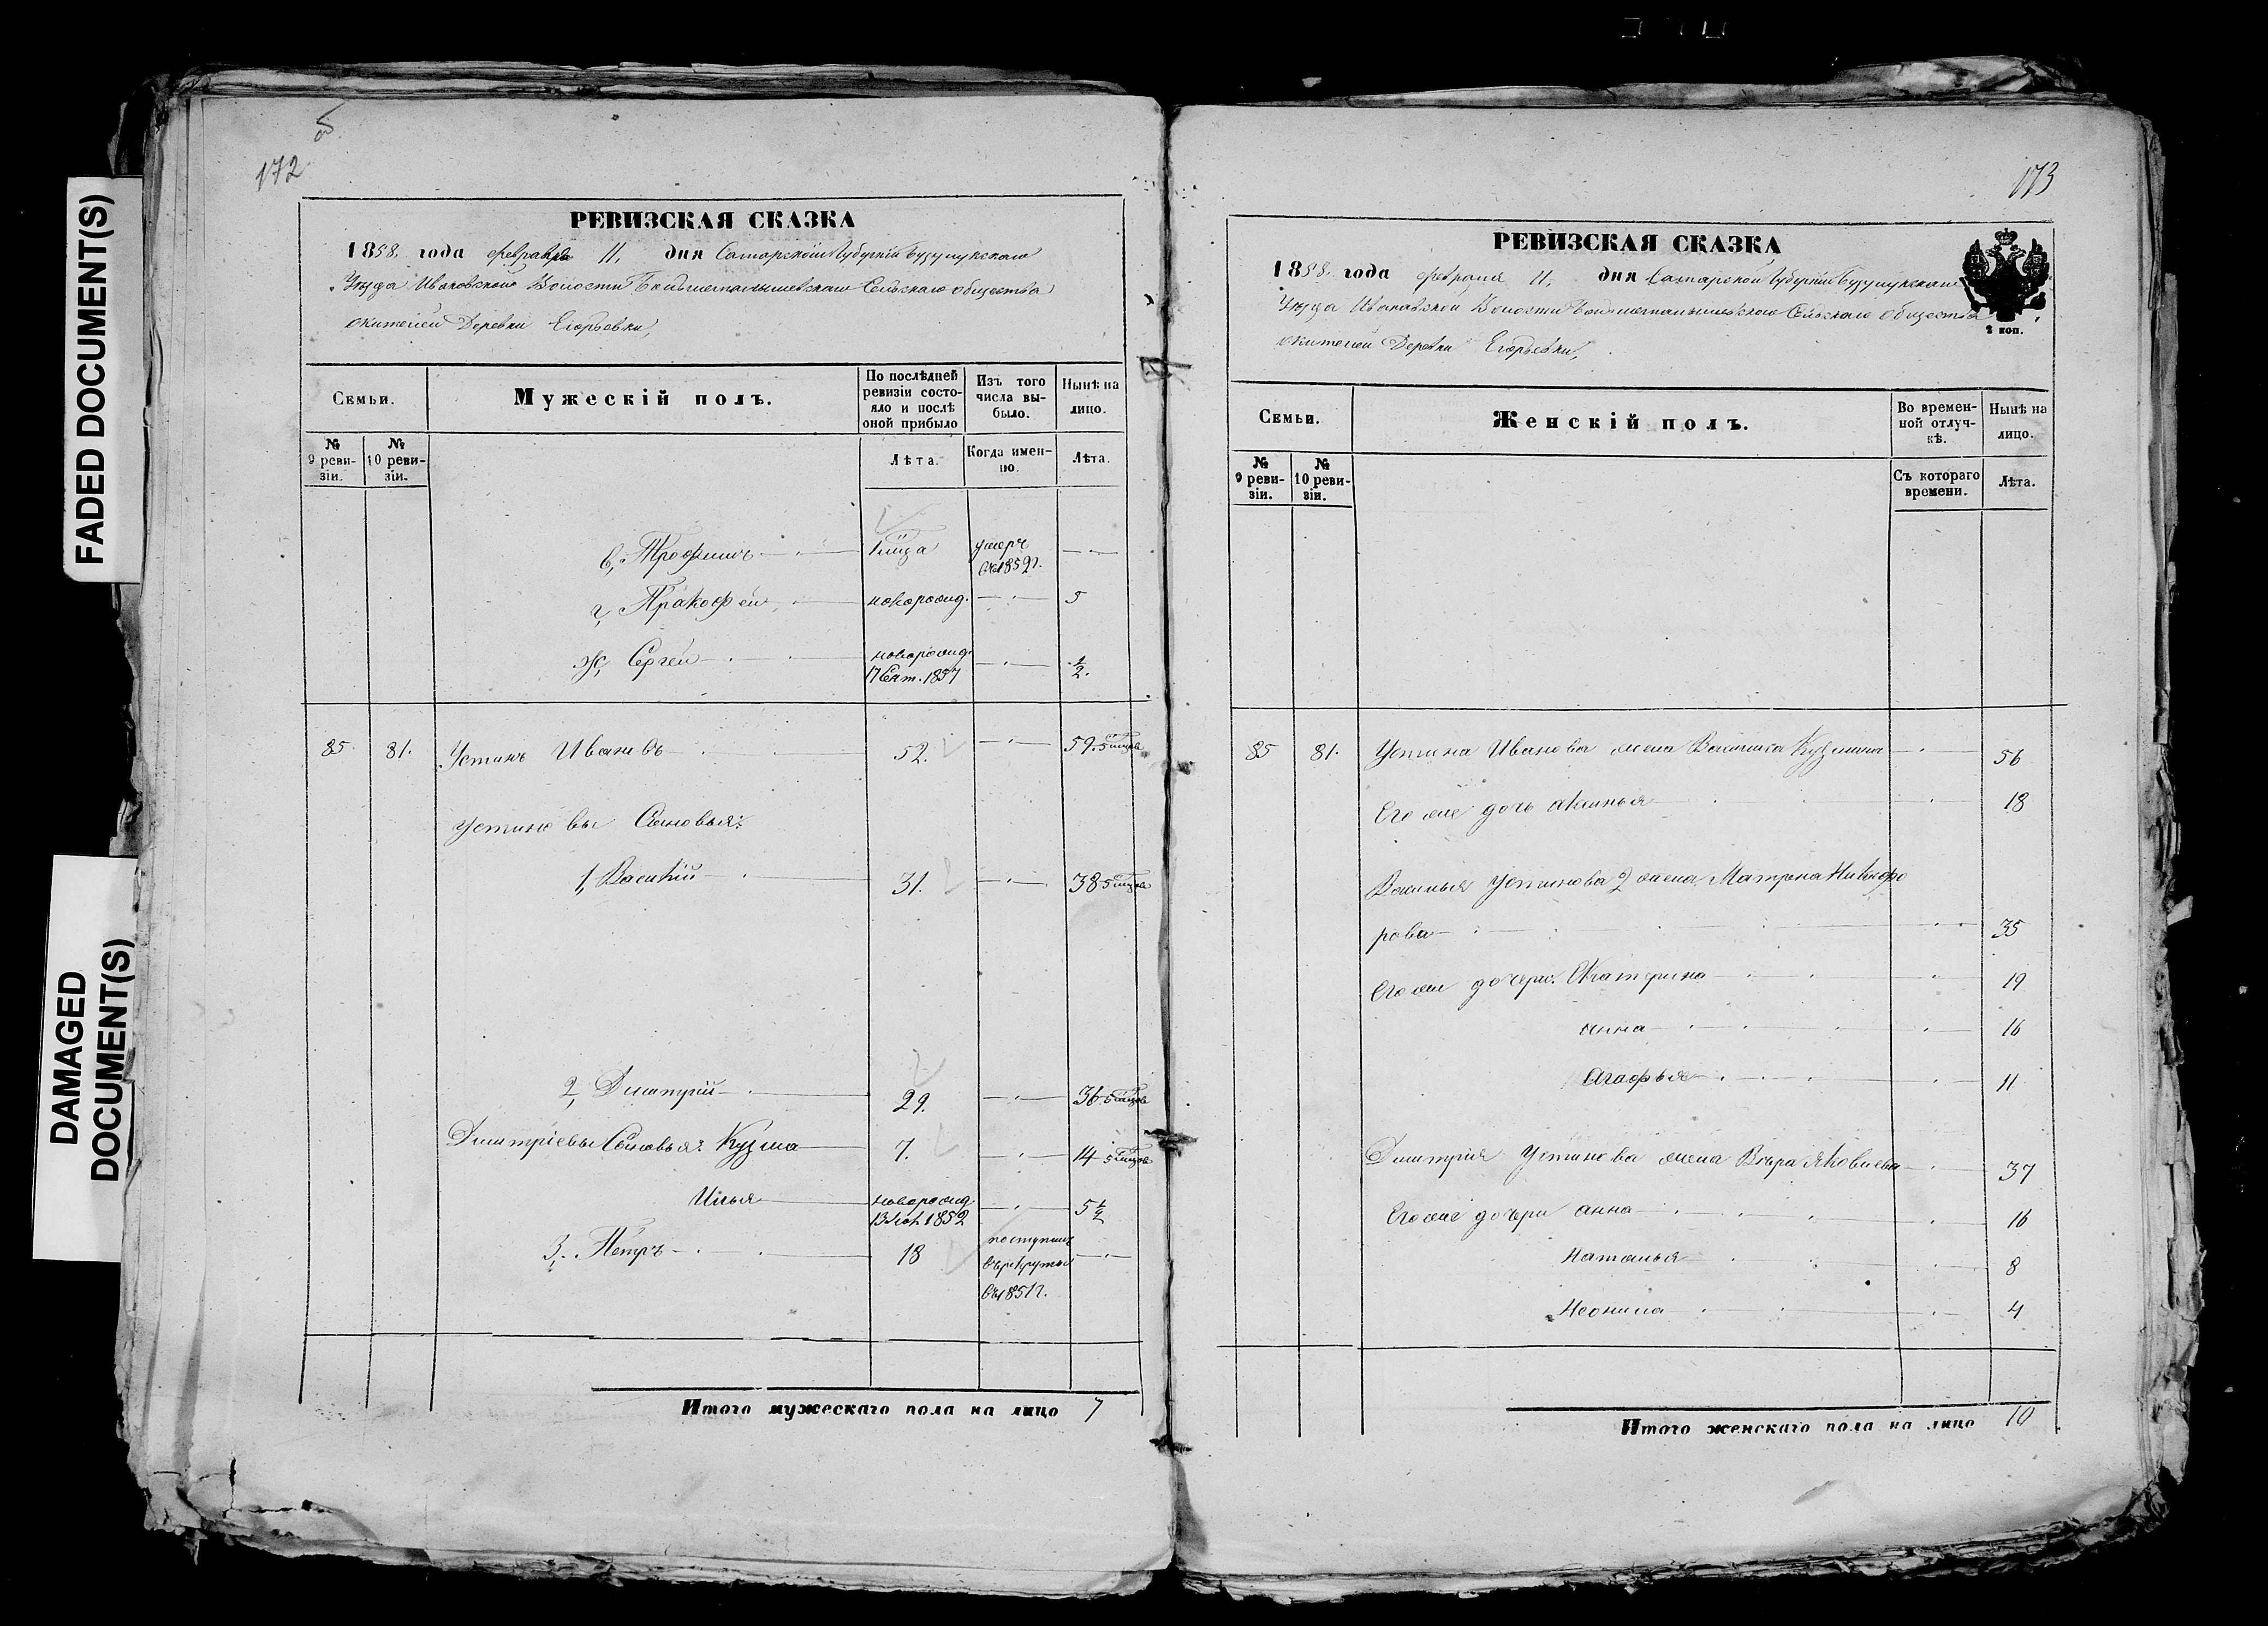 FADED DOCUMENT(S)
DAMAGED
DOCUMENT(S)
172
РЕВИЗСКАЯ СКАЗКА
1858. года февраля 11, дня Самарской Губерніи Бузулукскаго
Уезда Ивановской Волости Сельскаго общества
жителей Деревни Егорьевки,
Семьи.
Мужескій полъ.
По послѣдней ревизіи состояло и послѣ оной прибыло
Изъ того числа выбыло.
Нынѣ на лицо.
№ 9 ревизіи.
№ 10 ревизіи.
Лѣта.
Когда именно.
Лѣта.
в, Трофимъ умеръ въ 1852г.
г, Пракофей новорожд. 5
ж, Сергей новорожд. 17 Сент. 1857 1/2.
85. 81. Устинъ Ивановъ 52. 59.
Устиновы Сыновья:
1, Василій 31. 38
2, Дмитрій 29. 36.
Дмитріевы Сыновья: Кузма 7. 14
Илья новорожд 1852 5 1/2
3, Петръ 18 поступилъ въ рекруты въ 1851г.
Итого мужескаго пола на лицо 7
173
РЕВИЗСКАЯ СКАЗКА
1858. года февраля 11, дня Самарской Губерніи Бузулукскаго
Уезда Ивановской Волости Сельскаго общества
жителей Деревни Егорьевки,
2 коп.
Семьи.
Женскій полъ.
Во временной отлучкѣ.
Нынѣ на лицо.
№ 9 ревизіи.
№ 10 ревизіи.
Съ котораго времени.
Лѣта.
85 81. Устина Иванова жена Кузмина 56
Его же дочь Аксинья 18
Василья Устинова 2 жена Матрена Никифо
рова 35
Его же дочери: Екатерина 19
Анна 16
Агафья 11
Дмитрія Устинова жена Вѣра Яковлева 37
Его же дочери Анна 16
Наталья 8
Неонила 4
Итого женскаго пола на лицо 10